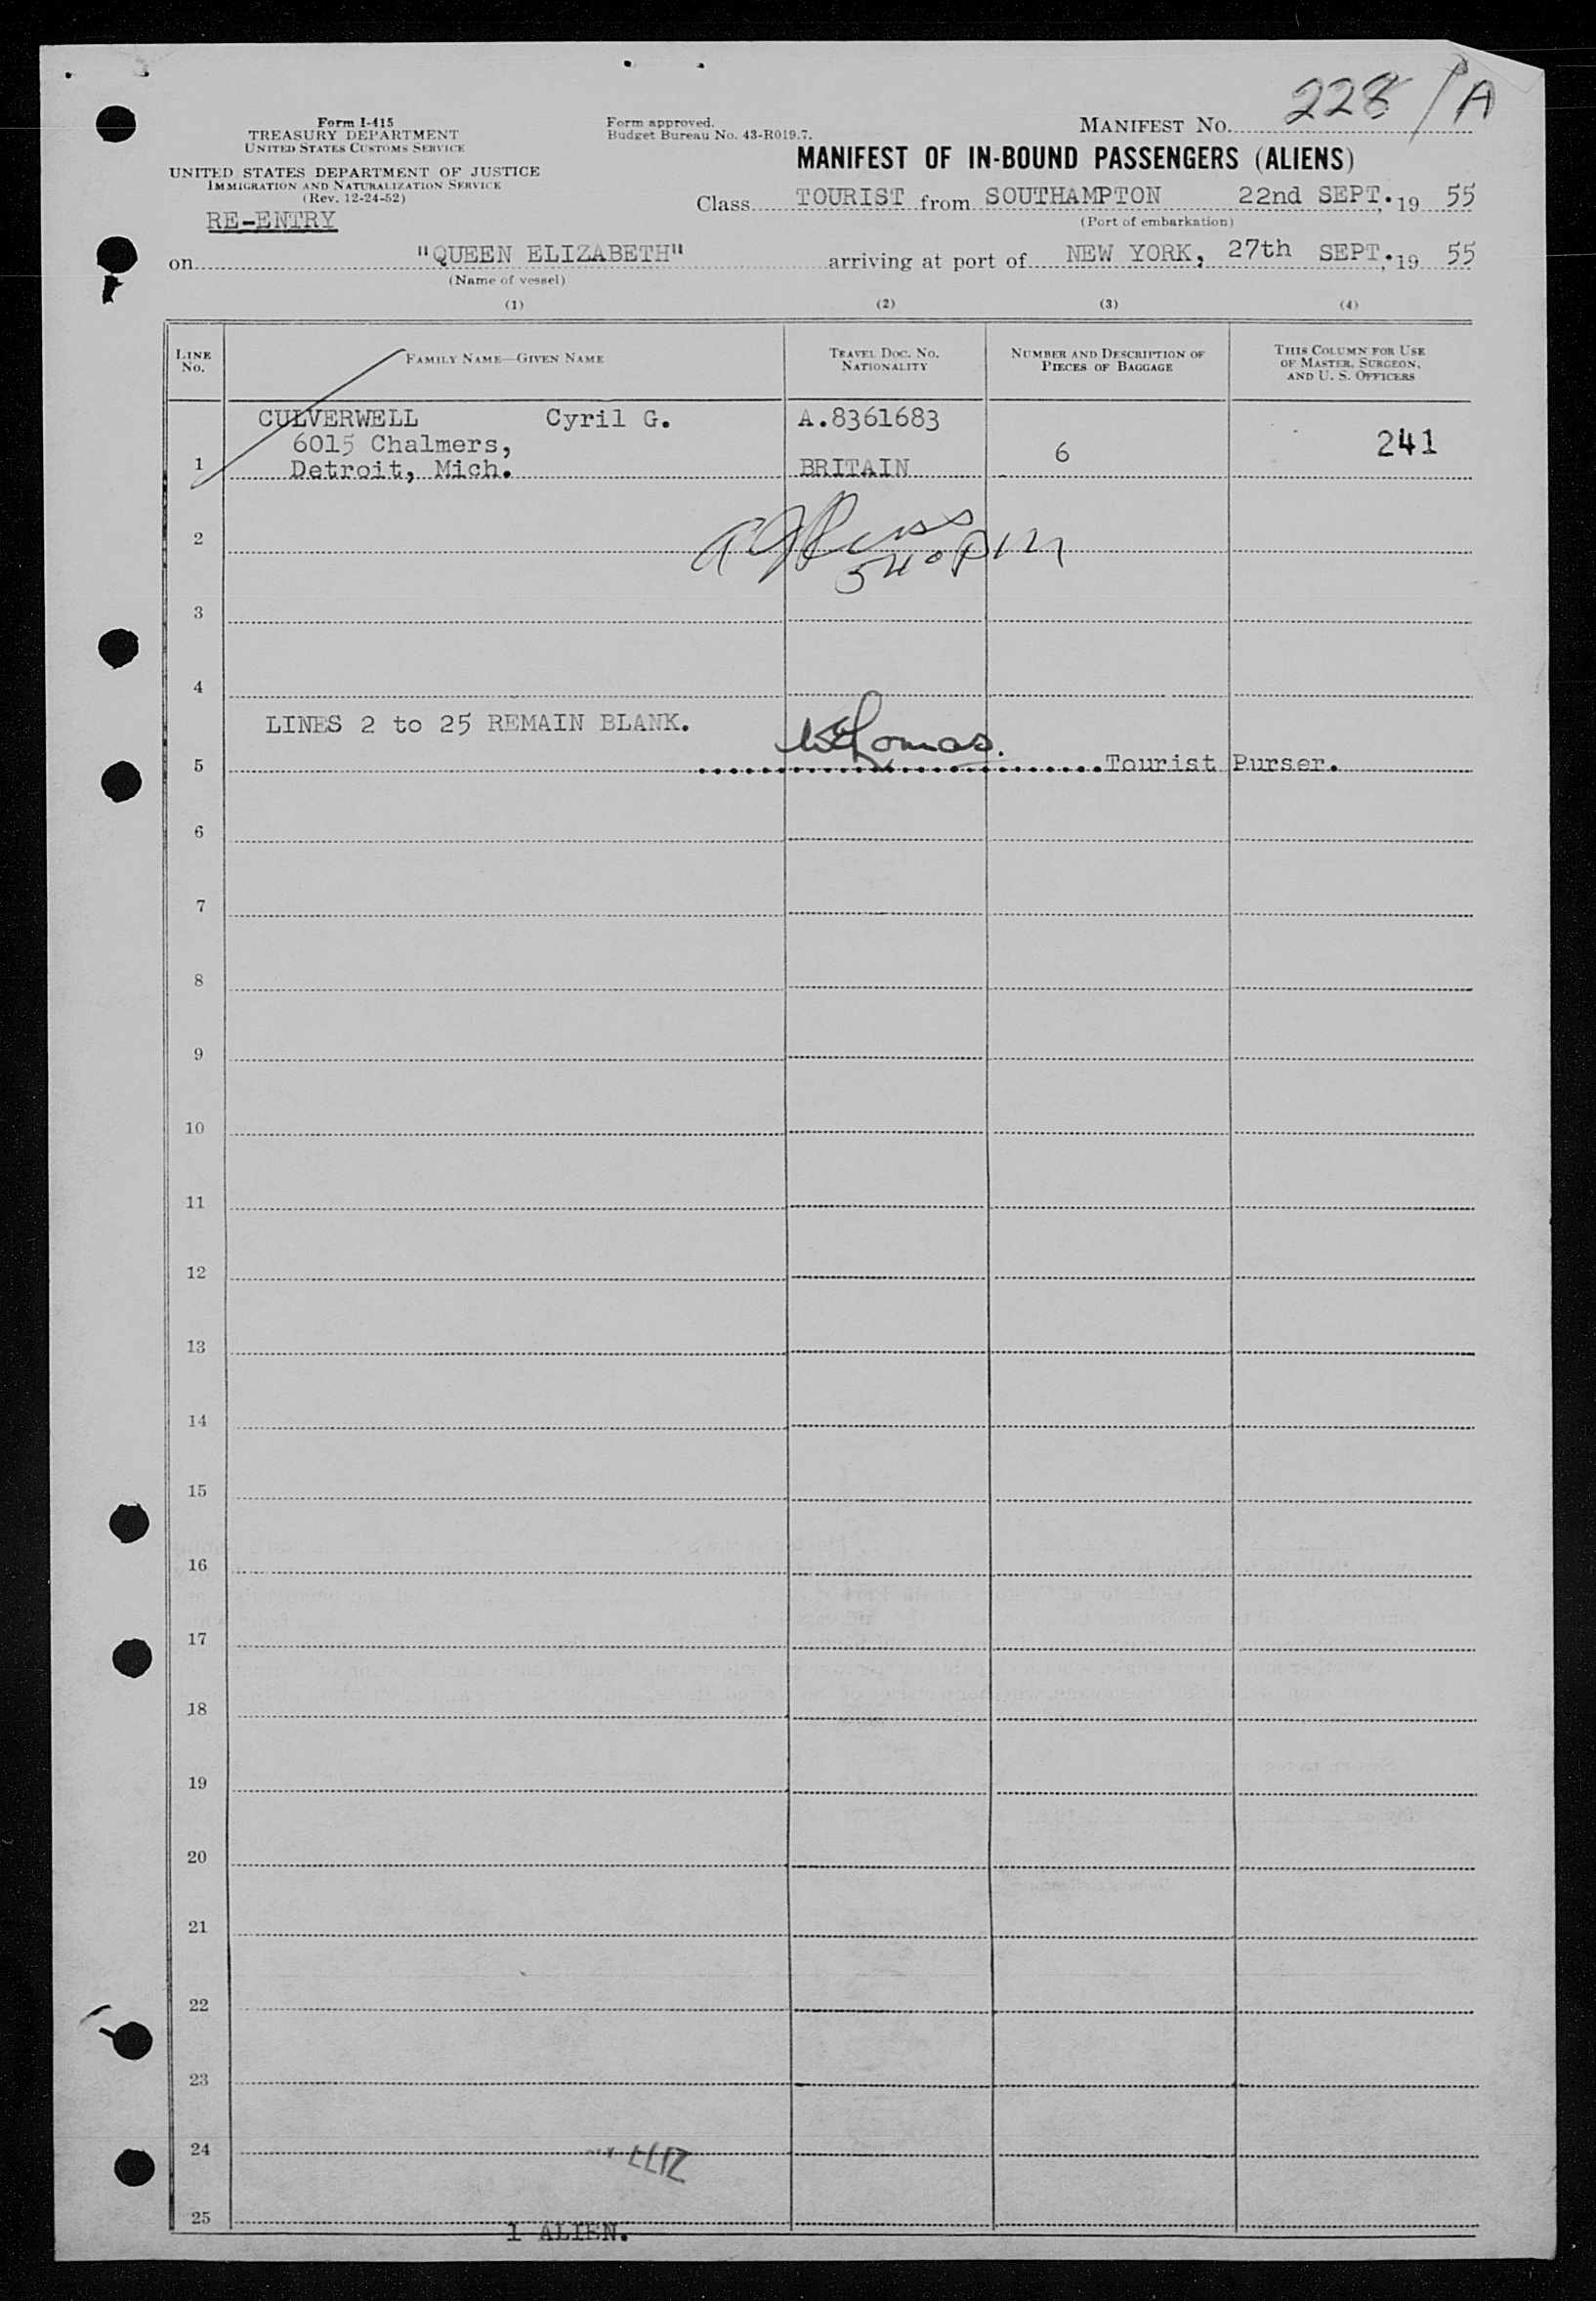 228/A
Form I-415
TREASURY DEPARTMENT
UNITED STATES CUSTOMS SERVICE
UNITED STATES DEPARTMENT OF JUSTICE
IMMIGRATION AND NATURALIZATION SERVICE
(Rev. 12-24-52)
RE-ENTRY
Form approved.
Budget Bureau No. 43-R019.7.
MANIFEST NO.
MANIFEST OF IN-BOUND PASSENGERS (ALIENS)
Class TOURIST from SOUTHAMPTON 22nd SEPT. 19 55
(Port of embarkation)
on "QUEEN ELIZABETH" arriving at port of NEW YORK, 27th SEPT. 19 55
(Name of vessel)
(1) (2) (3) (4)
LINE NO.
FAMILY NAME—GIVEN NAME
TRAVEL DOC. NO. NATIONALITY
NUMBER AND DESCRIPTION OF PIECES OF BAGGAGE
THIS COLUMN FOR USE OF MASTER, SURGEON, AND U. S. OFFICERS
CULVERWELL Cyril G. A.8361683
6015 Chalmers, 6 241
1 Detroit, Mich. BRITAIN
2
540 pm
3
4
LINES 2 to 25 REMAIN BLANK.
5 Tourist Purser.
6
7
8
9
10
11
12
13
14
15
16
17
18
19
20
21
22
23
24
ELIZ
25
1 ALIEN.